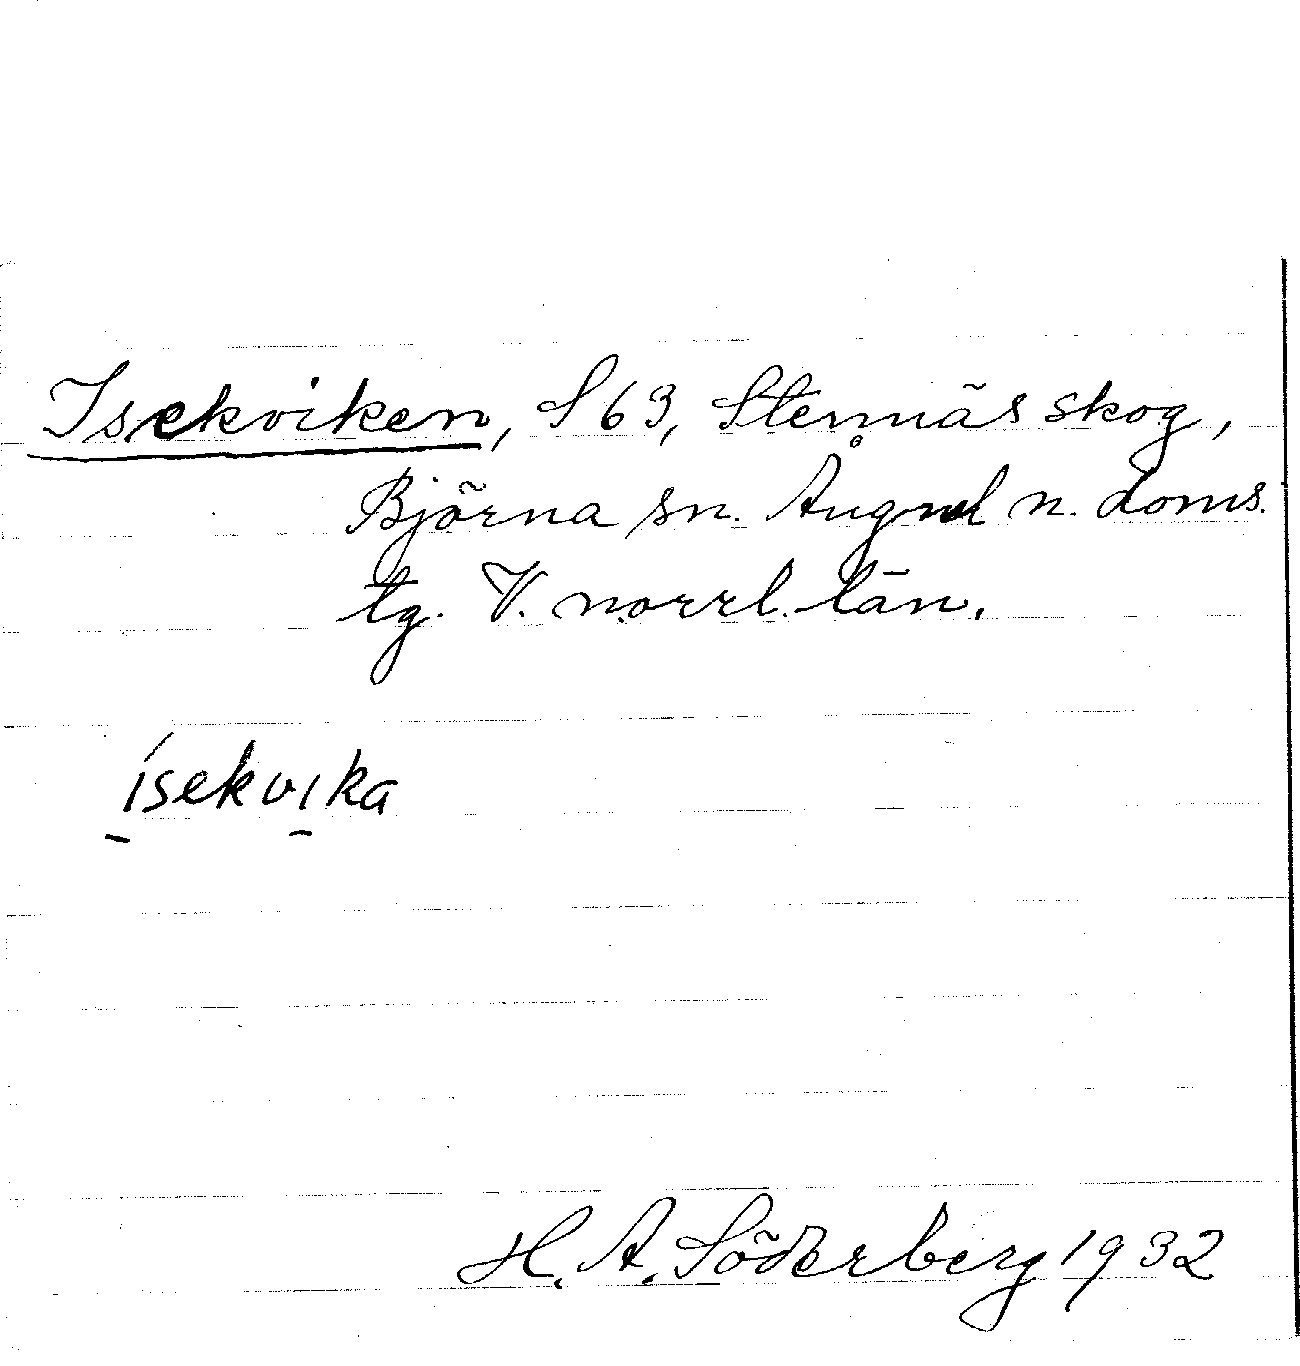 Isekviken, S 63, Stennäs skog,
Björna sn. Ångml n. doms.
tg. V. norrl. län.
ísekvika
H. A. Söderberg 1932